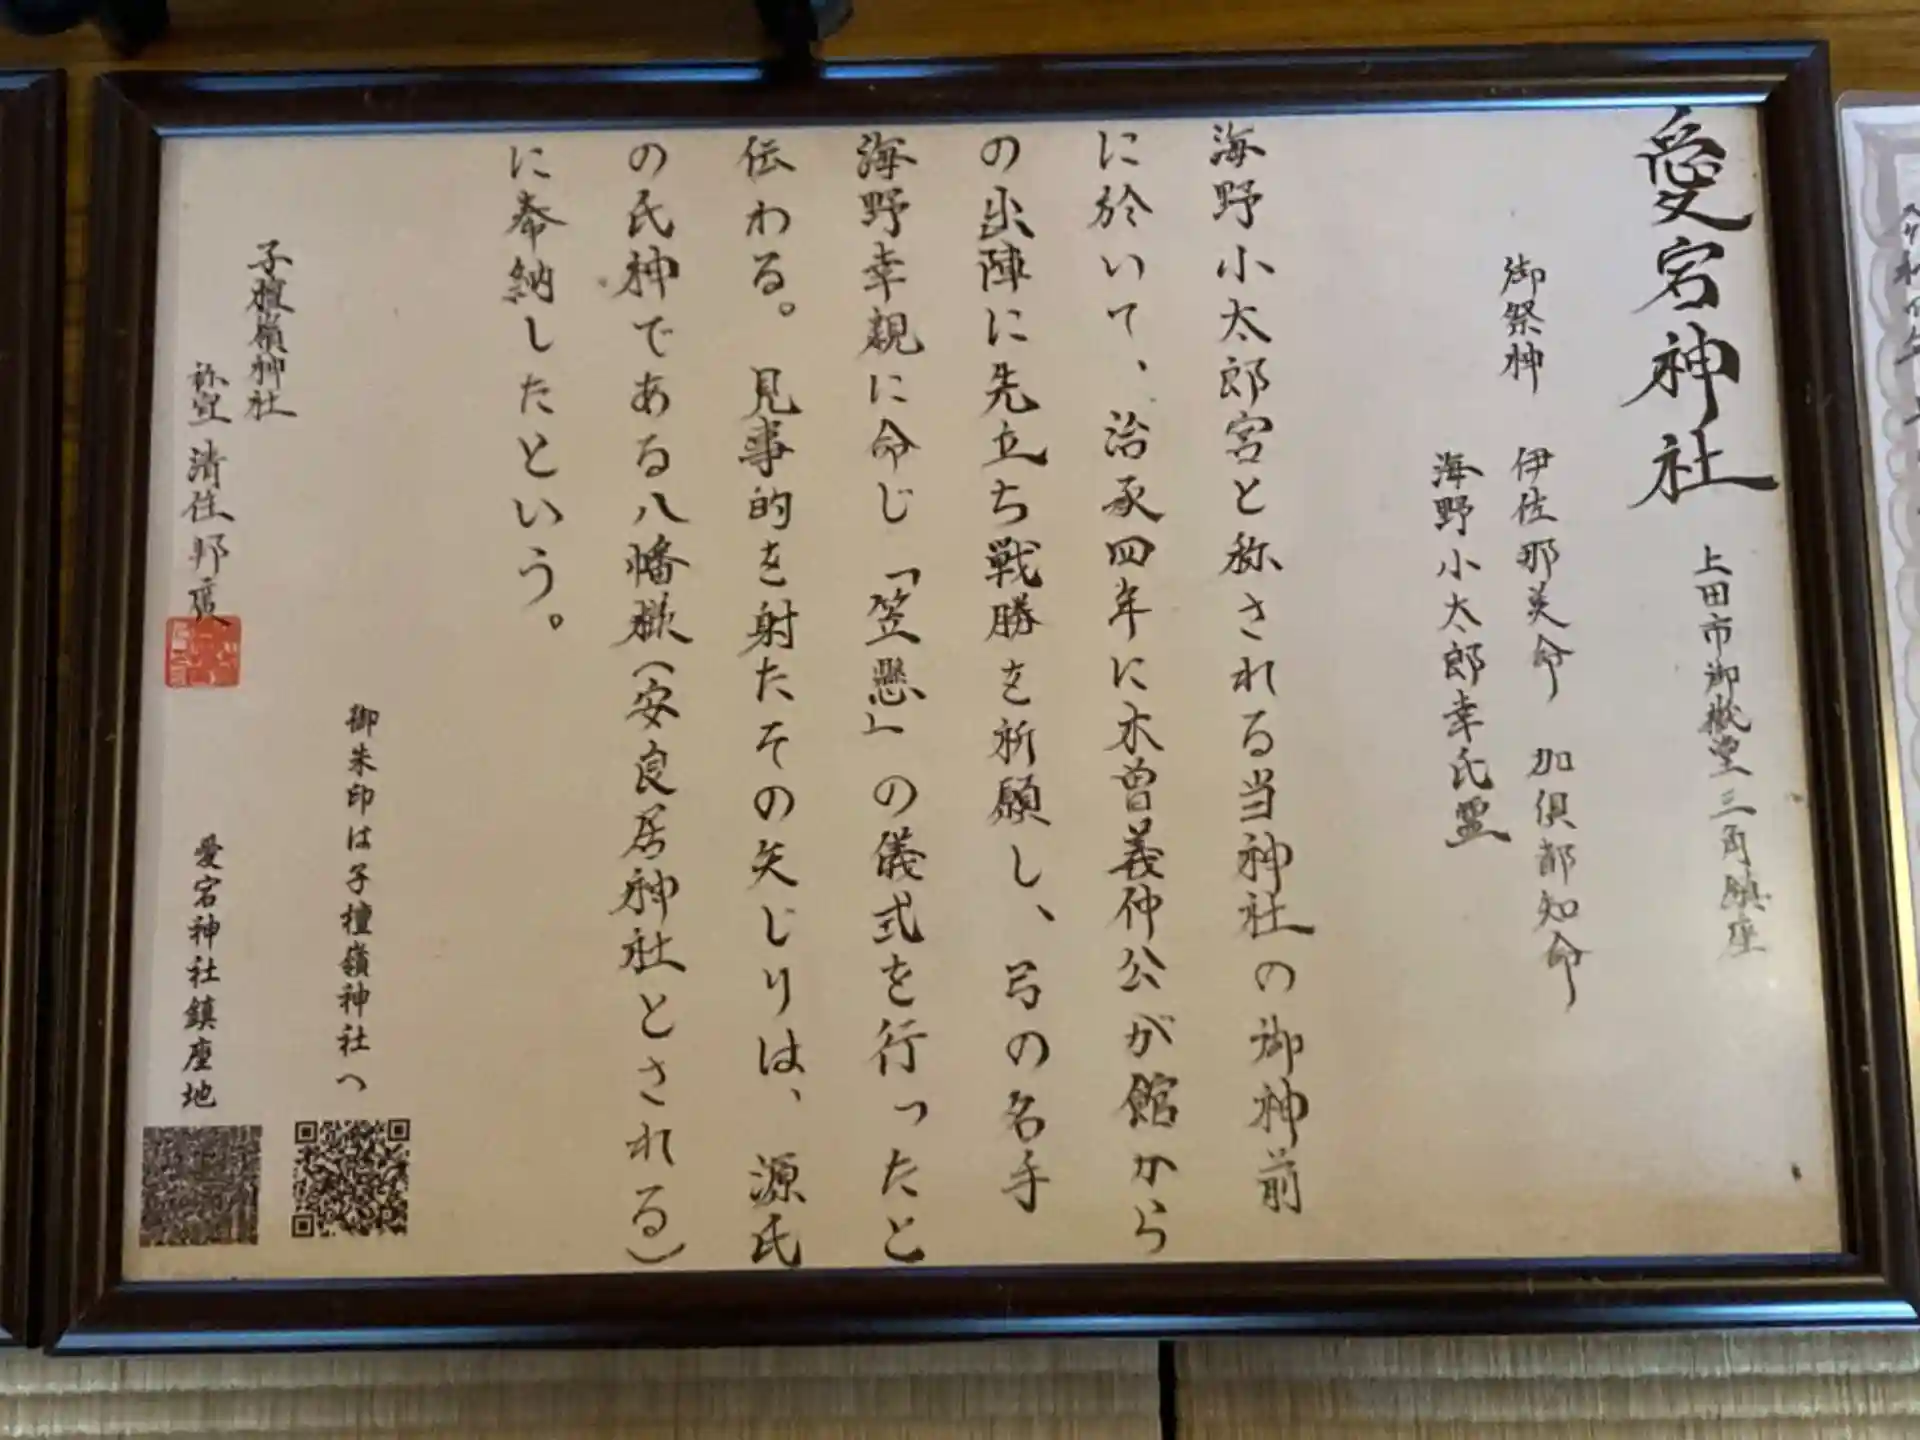 愛宕神社
上田市御嶽堂三角鎮座
御祭神 伊佐那美命 加倶都知命
海野小太郎幸氏霊
海野小太郎宮と称される当神社の御神前
に於いて、治承四年に木曽義仲公が館から
の出陣に先立ち戦勝を祈願し、弓の名手
海野幸親に命じ「笠懸」の儀式を行ったと
伝わる。見事的を射たその矢じりは、源氏
の氏神である八幡様(安良居神社とされる)
に奉納したという。
御朱印は子檀嶺神社へ
子檀嶺神社
祢宜 清住邦彦
愛宕神社鎮座地